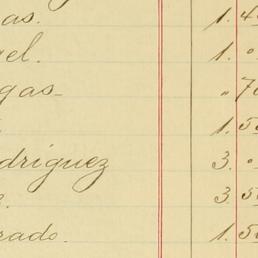 as. 1. 4
el. 1. 0
gas — " 7
1. 5
driguez 3. 0
3. 5
rado. 1. 5